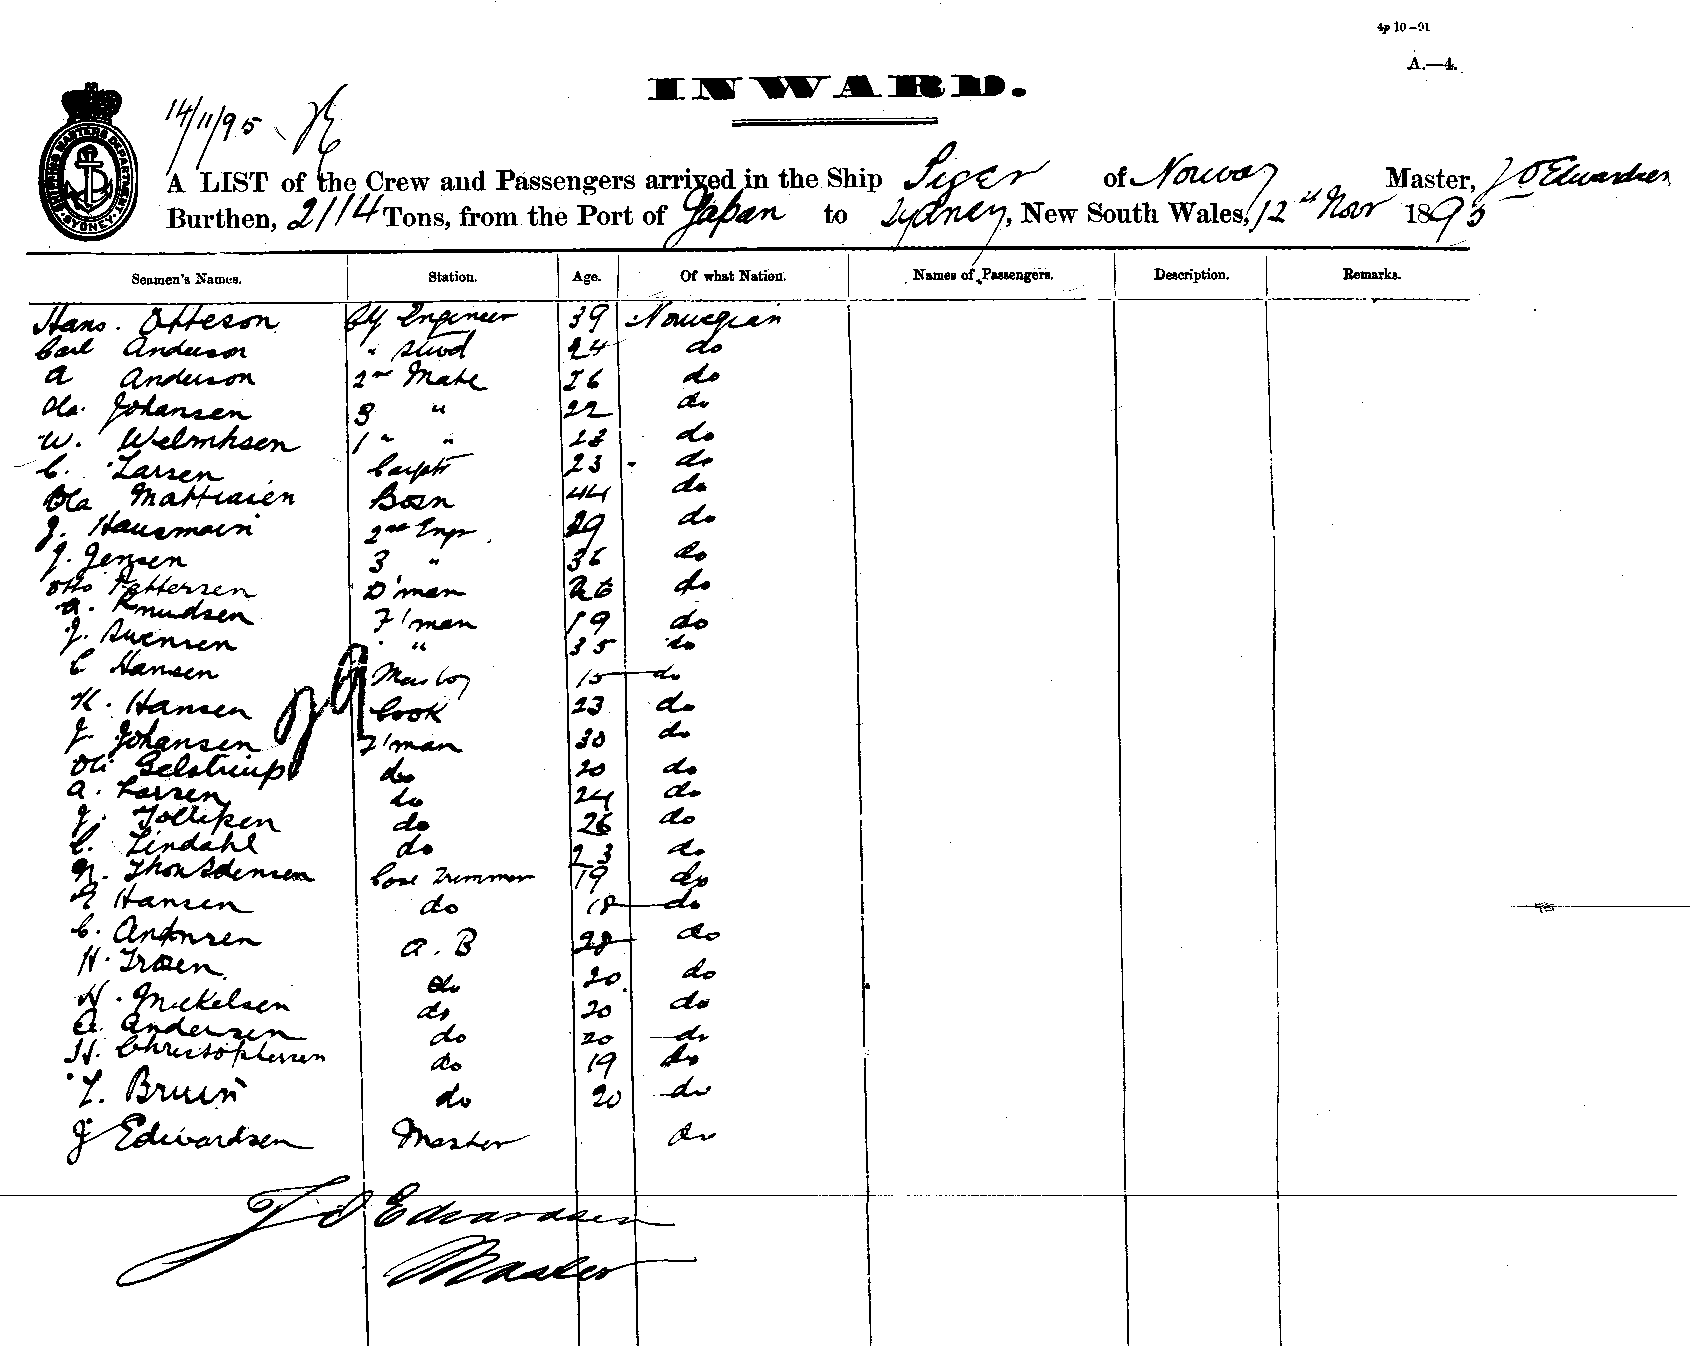 4p 10–91
A.—4.
INWARD.
14/11/95
A LIST of the Crew and Passengers arrived in the Ship Siger of Norway Master, J O Edwardsen
Burthen, 2114 Tons, from the Port of Japan to Sydney, New South Wales, 12th Nov 1895
Seamen's Names. Station. Age. Of what Nation. Names of Passengers. Description. Remarks.
Hans. Otteson Cf Engineer 39 Norwegian
Carl Anderson " Stwd 24 do
A Anderson 2nd Mate 26 do
Ola. Johansen 3 " 22 do
W. 1 " " 23 do
C. Larsen Carptr 23 do
Ola Bosn 44 do
J. 2nd Engr. 29 do
J. Jensen 3 " 36 do
Otto Pettersen D'man 26 do
A. Knudsen F'man 19 do
J. Svensen " 35 do
C Hansen 15 do
K. Hansen Cook 23 do
J Johansen F'man 30 do
Gelstrup do 20 do
A. Larsen do 24 do
J. do 26 do
C. Lindahl do 23 do
Coal Trimmer 19 do
G Hansen do 18 do
C. A.B 28 do
H. do 20 do
N. Mickelsen do 20 do
A. Andersen do 20 do
H. Christophersen do 19 do
T. Bruun do 20 do
J Edwardsen Master do
J O Edwardsen
Master